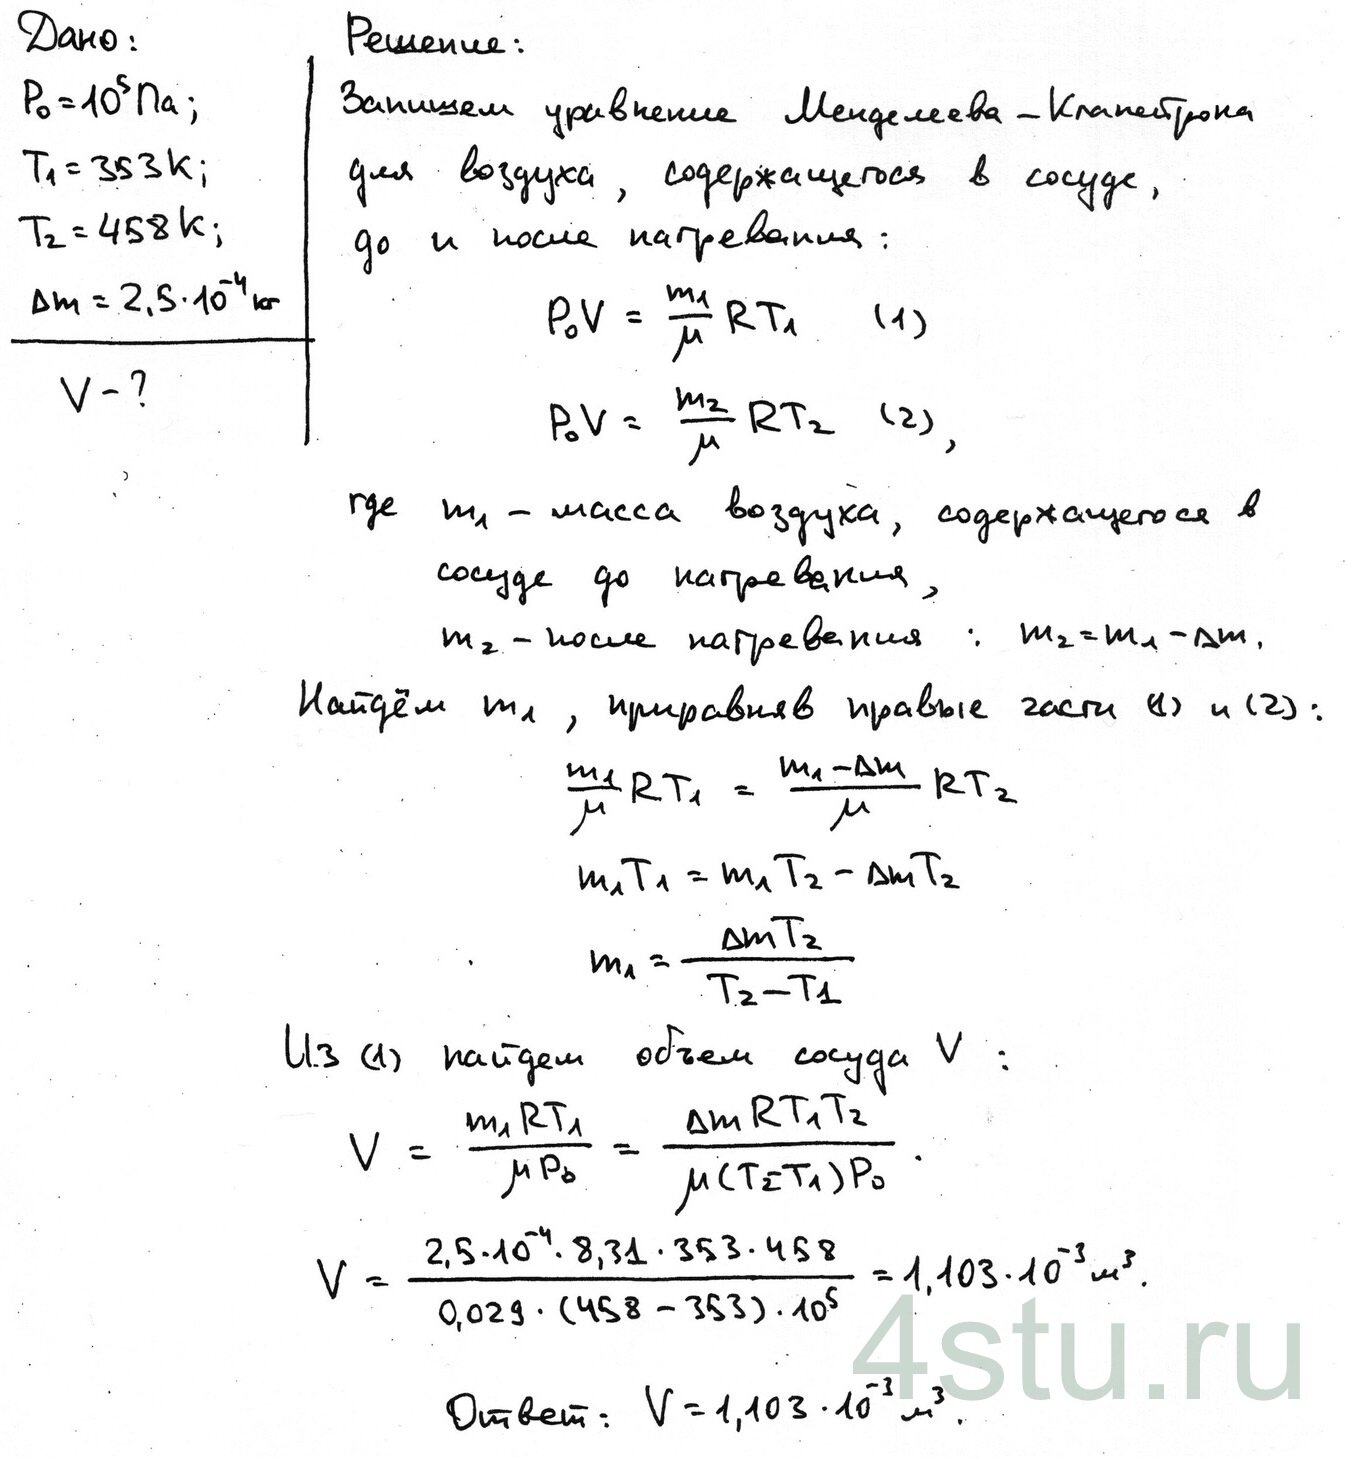 Дано:
P₀ = 10⁵ Па;
T₁ = 353 К;
T₂ = 458 К;
Δm = 2,5·10⁻⁴ кг
V - ?
Решение:
Запишем уравнение Менделеева - Клапейрона
для воздуха, содержащегося в сосуде,
до и после нагревания:
P₀V = m₁/μ RT₁ (1)
P₀V = m₂/μ RT₂ (2),
где m₁ - масса воздуха, содержащегося в
сосуде до нагревания,
m₂ - после нагревания : m₂ = m₁ - Δm.
Найдём m₁, приравняв правые части (1) и (2):
m₁/μ RT₁ = (m₁ - Δm)/μ RT₂
m₁T₁ = m₁T₂ - ΔmT₂
m₁ = ΔmT₂/(T₂ - T₁)
Из (1) найдем объем сосуда V :
V = m₁RT₁/μP₀ = ΔmRT₁T₂/μ(T₂-T₁)P₀.
V = 2,5·10⁻⁴·8,31·353·458/0,029·(458 - 353)·10⁵ = 1,103·10⁻³ м³.
4stu.ru
Ответ: V = 1,103·10⁻³ м³.